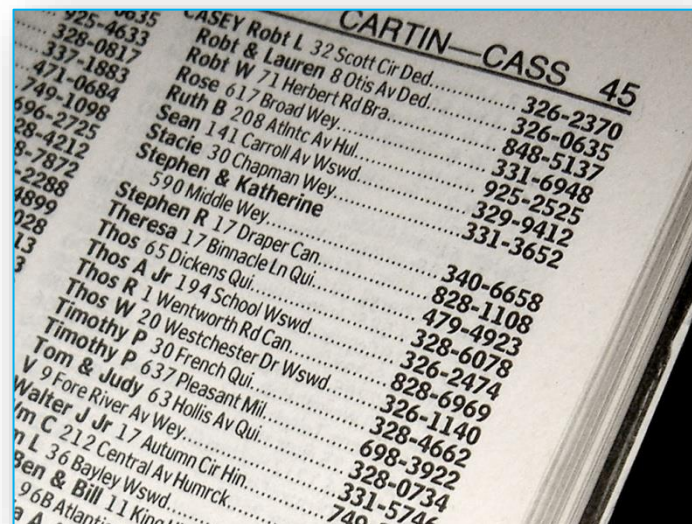 CARTIN—CASS 45
925-4633
328-0817
337-1883
471-0684
749-1098
696-2725
28-4212
8-7872
-2288
4899
028
13
3
CASEY Robt L 32 Scott Cir Ded 326-2370
Robt & Lauren 8 Otis Av Ded 326-0635
Robt W 71 Herbert Rd Bra 848-5137
Rose 617 Broad Wey 331-6948
Ruth B 208 Atlntc Av Hul 925-2525
Sean 141 Carroll Av Wswd 329-9412
Stacie 30 Chapman Wey 331-3652
Stephen & Katherine
590 Middle Wey 340-6658
Stephen R 17 Draper Can 828-1108
Theresa 17 Binnacle Ln Qui 479-4923
Thos 65 Dickens Qui 328-6078
Thos A Jr 194 School Wswd 326-2474
Thos R 1 Wentworth Rd Can 828-6969
Thos W 20 Westchester Dr Wswd 326-1140
Timothy P 30 French Qui 328-4662
Timothy P 637 Pleasant Mil 698-3922
Tom & Judy 63 Hollis Av Qui 328-0734
V 9 Fore River Av Wey 331-5746
Walter J Jr 17 Autumn Cir Hin 749-
m C 212 Central Av Humrck
L 36 Bayley Wswd
Ben & Bill 11 King
96B Atlanti